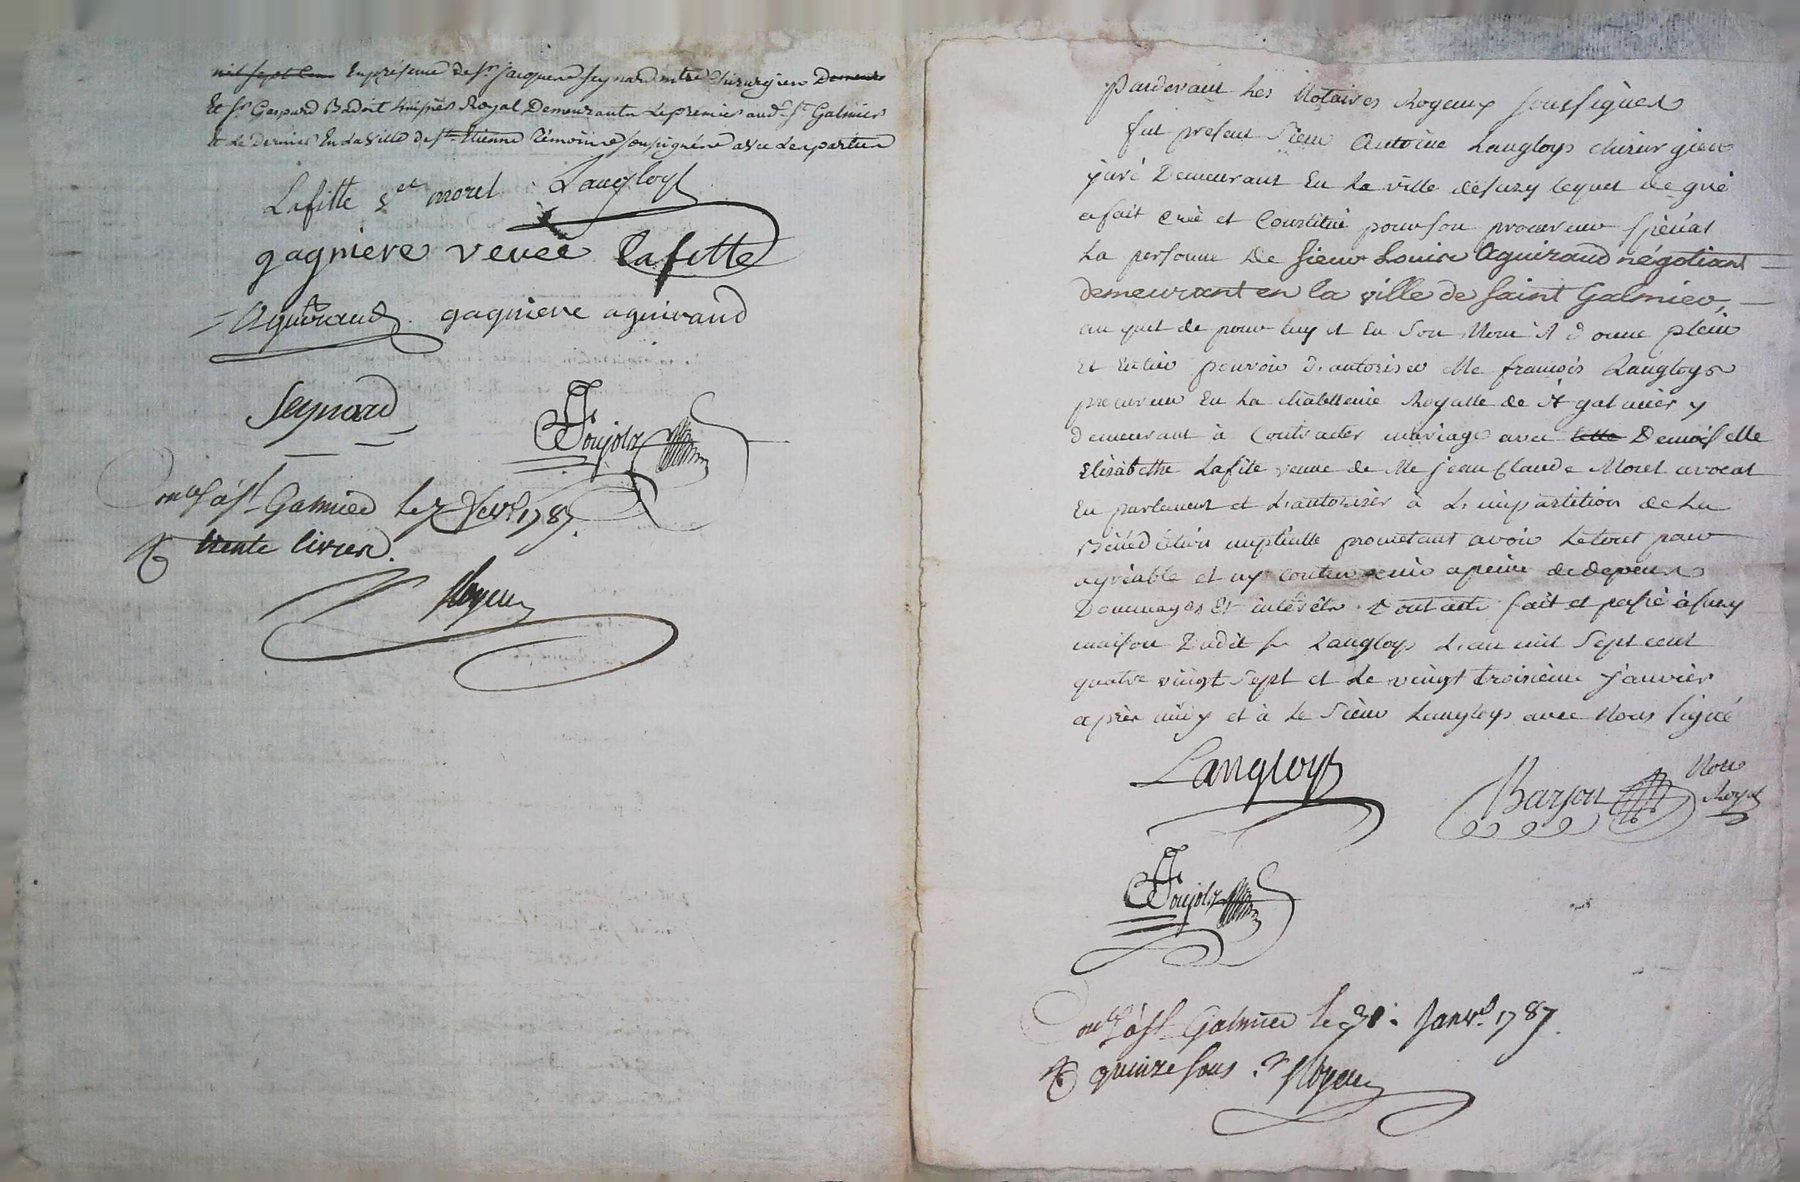 mil sept cen En présence de Sr jacquemé seynard mtre Chirurgien Demeu
Et Sr Gaspard Badoit huissier Royal Demeurants Le premier aud. St Galmier
et Le dernier En La Ville de St Etienne Témoins soussignés avec Les parties
Lafitte Morel Langloys
gagniere veuve Lafitte
Aguiraud gagniere aguiraud
Seynard
Poujolz
à St Galmier le 7 fevr. 1787.
R trente livres.
Pardevant Les Notaires Royeaux soussignés
fut present Sieur Antoine Langloys chirurgien
juré Demeurant En La ville desury lequel de gré
a fait Créé et Constitué pour son procureur spécial
La personne De sieur Louis Aguiraud négotiant
demeurant en la ville de Saint Galmier,
au quel de pour luy et En Son Nom il donne plein
Et Entier pouvoir d'autoriser Me françois Langloys
procureur En La Chatellenie Royalle de st galmier y
demeurant à Contracter mariage avec Demoiselle
Elisabethe Lafite veuve de Me jean Claude Morel avocat
En parlement et L'autoriser à L'impartition de La
Bénédiction nuptialle prometant avoir Letout pour
agréable et ny contrevenir apeine de depens
Dommages Et intérêts. Dont acte fait et passé à sury
maison Dudit sr Langloys L'an mil Sept cent
quatre vingt Sept et Le vingt troisième janvier
après midy et à Le Sieur Langloys avec Nous signé
Langloys
Barjon Notre
Royal
Poujolz
à St Galmier le 31. Janvr. 1787.
R quinze sous.